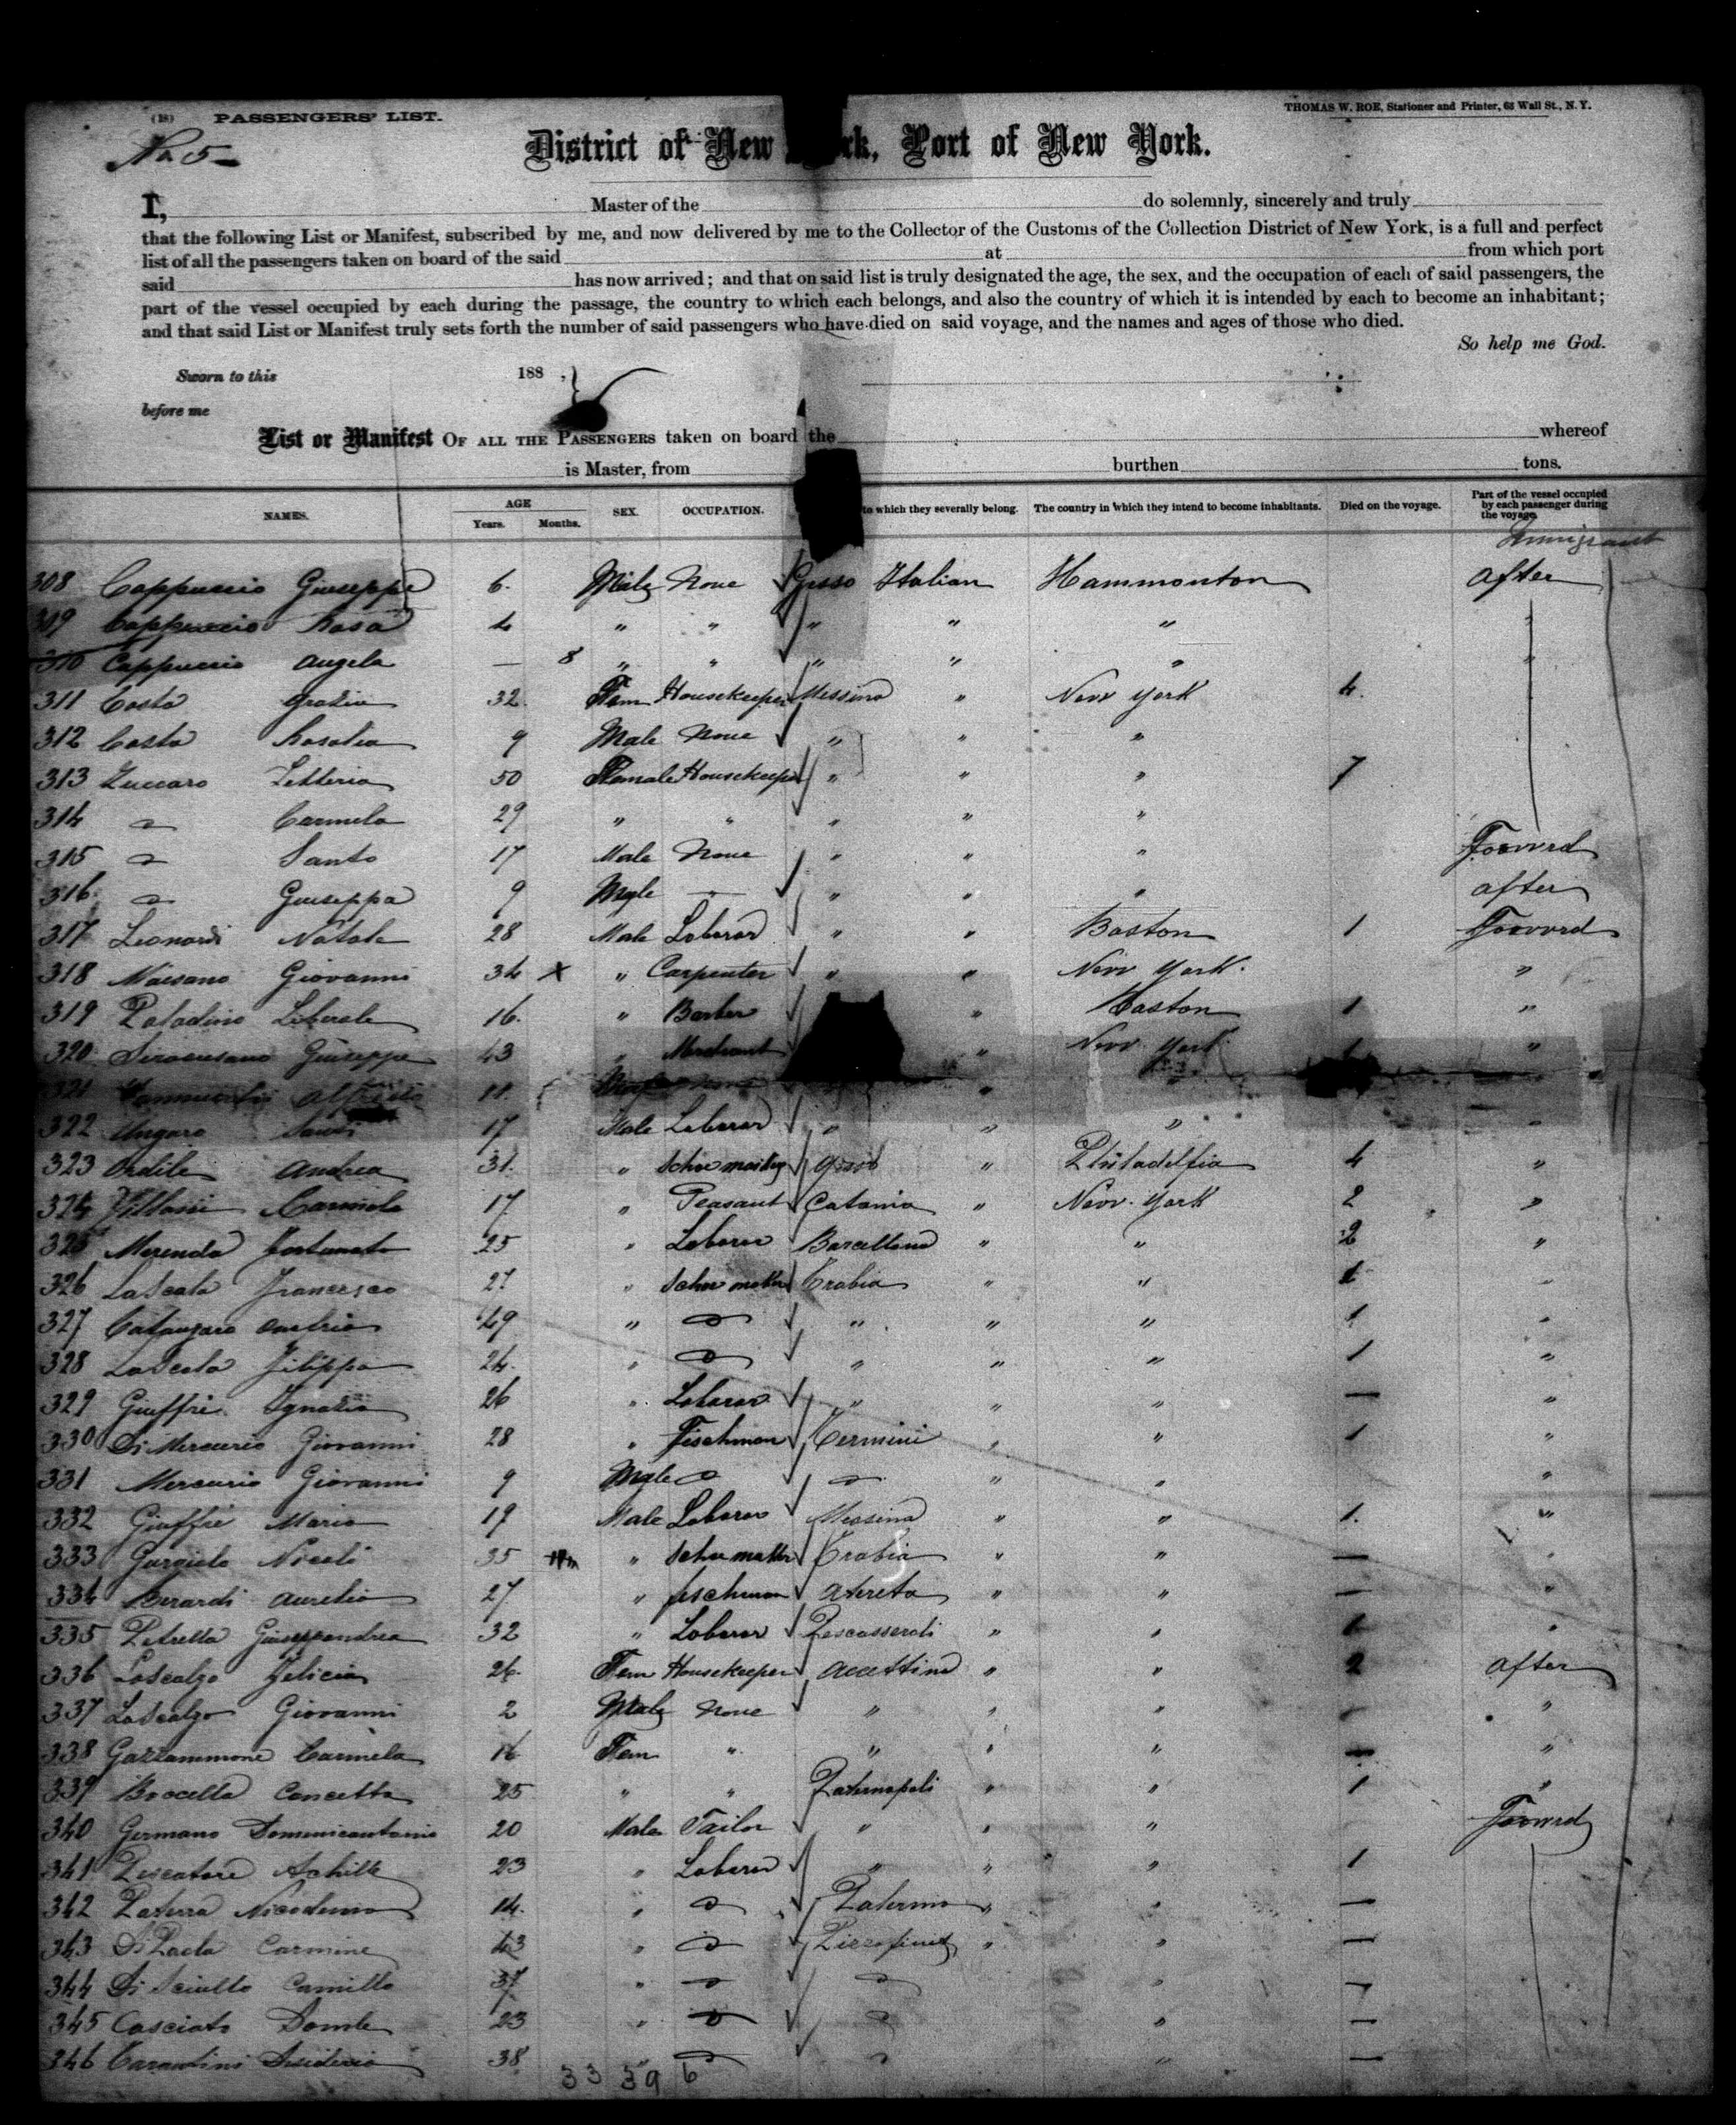 (18) PASSENGERS' LIST. THOMAS W. ROE, Stationer and Printer, 63 Wall St., N. Y.
No 5
District of New rk, Port of New York.
I, Master of the do solemnly, sincerely and truly
that the following List or Manifest, subscribed by me, and now delivered by me to the Collector of the Customs of the Collection District of New York, is a full and perfect
list of all the passengers taken on board of the said at from which port
said has now arrived; and that on said list is truly designated the age, the sex, and the occupation of each of said passengers, the
part of the vessel occupied by each during the passage, the country to which each belongs, and also the country of which it is intended by each to become an inhabitant;
and that said List or Manifest truly sets forth the number of said passengers who have died on said voyage, and the names and ages of those who died.
So help me God.
Sworn to this 188 ,
before me
List or Manifest OF ALL THE PASSENGERS taken on board the whereof
is Master, from burthen tons.
NAMES. AGE Years. Months. SEX. OCCUPATION. to which they severally belong. The country in which they intend to become inhabitants. Died on the voyage. Part of the vessel occupied by each passenger during the voyage.
308 Cappuccio Giuseppe 6. Male None Gesso Italian Hammonton after
309 Cappuccio Rosa 4 " " " " "
310 Cappuccio Angela — 8 " " " " "
311 Costa Grazia 32 Fem Housekeeper Messina " New York 4.
312 Costa Rosalia 9 Male None " " "
313 Zuccaro Letteria 50 Female Housekeeper " " " 7
314 " Carmela 29 " " " " "
315 " Santo 17 Male None " " " Foowrd
316 " Giuseppa 9 " " " " after
317 Leonardi Natale 28 Male Laborar " " Boston 1 Foowrd
318 Maesano Giovanni 34 X " Carpenter " " New York. "
319 Paladino Liberale 16. " Barber " Boston 1 "
320 Siracusano Giuseppe 43 " Merchant " New York "
321 11. "
322 Ungaro 17 Male Laborar " " " "
323 Ordile Andrea 31. " Gesso " Philadelfia 4 "
324 Villani Carmelo 17 " Peasant Catania " New York 2 "
325 Merenda Fortunato 25 " Laborar Barcellona " " 2 "
326 LaScala Francesco 27 " Trabia " " "
327 Catanzaro Onofrio 49 " " " " " 1 "
328 LaScala Filippo 24. " " " " " 1 "
329 Giuffre Ignazio 26 " Laborar " " " — "
330 Di Mercurio Giovanni 28 " Fischman Termini " " 1 "
331 Mercurio Giovanni 9 " " " " "
332 Giuffre Mario 19 Male Laborar Messina " " 1. "
333 Gargiulo 35 " Trabia " " — "
334 Berardi Aurelio 27 " fischman " " — "
335 Petrella Giuseppandrea 32 " Laborar Pescasseroli " " 1 "
336 LoScalzo Felicia 26. Fem Housekeeper Accettina " " 2 after
337 LoScalzo Giovanni 2 Male None " " " "
338 Gazzammone Carmela 16 Fem " " " " — "
339 Boccella Concetta 25 " " Paternopoli " " 1 "
340 Germano Domenicantonio 20 Male Tailor " " " Foowrd
341 Pescatore Achille 23 " Laborar " " " 1
342 Paterra Nicodemo 14. " " Palermo " " —
343 Di Paola Carmine 43 " " " " —
344 Di Sciullo Camillo 37 " " " " —
345 Casciato 23 " " " " —
346 Desiderio 38 " " " " —
33 39 6